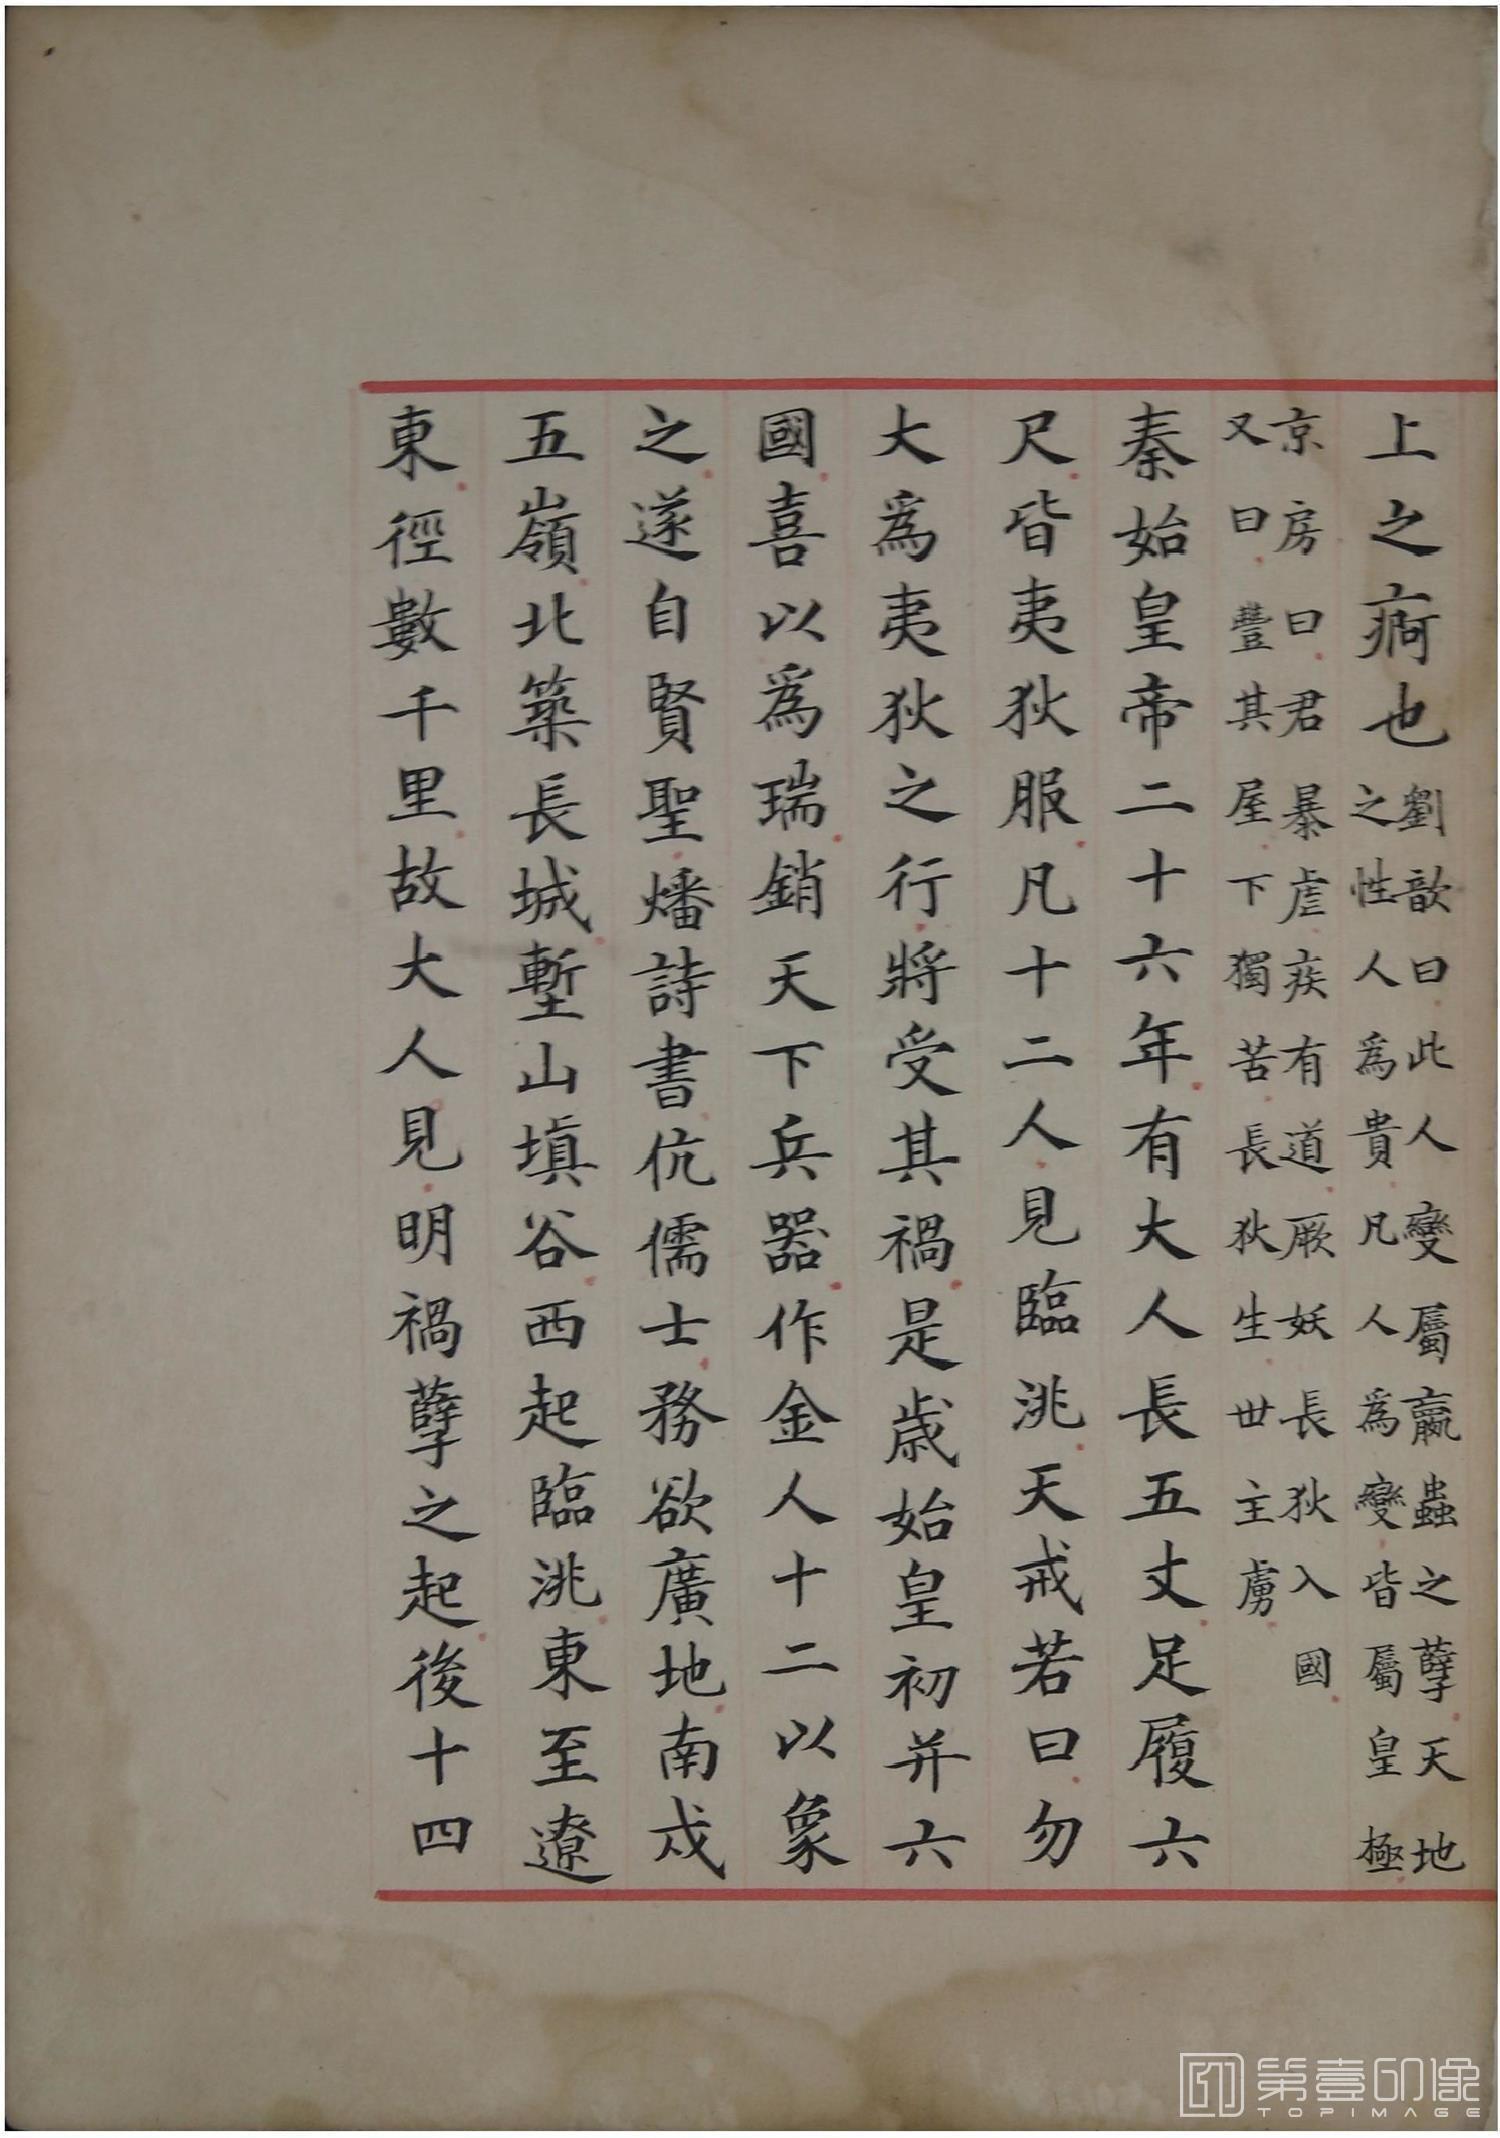 上之痾也劉歆曰此人變屬臝蟲之孽天地之性人為貴凡人為變皆屬皇極
京房曰君暴虐疾有道厥妖長狄入國又曰豐其屋下獨苦長狄生世主虜
秦始皇帝二十六年有大人長五丈足履六
尺皆夷狄服凡十二人見臨洮天戒若曰勿
大為夷狄之行將受其禍是歲始皇初并六
國喜以為瑞銷天下兵器作金人十二以象
之遂自賢聖燔詩書伉儒士務欲廣地南戍
五嶺北築長城塹山填谷西起臨洮東至遼
東徑數千里故大人見明禍孽之起後十四
第壹印像
TOPIMAGE